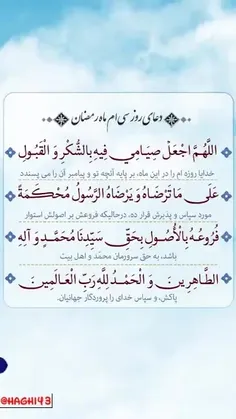 دعای روز سی ام ماه رمضان
اللَّهُمَّ اجْعَلْ صِيَامِي فِيهِ بِالشُّكْرِ وَ الْقَبُولِ
خدایا روزه ام را در این ماه، بر پایه آنچه تو و پیامبر آن را می پسندد
عَلَى مَا تَرْضَاهُ وَ يَرْضَاهُ الرَّسُولُ مُحْكَمَةً
مورد سپاس و پذیرش قرار ده، درحالیکه فروعش بر اصولش استوار
فُرُوعُهُ بِالْأُصُولِ بِحَقِّ سَيِّدِنَا مُحَمَّدٍ وَ آلِهِ
باشد، به حق سرورمان محمّد و اهل بیت
الطَّاهِرِينَ وَ الْحَمْدُ لِلَّهِ رَبِّ الْعَالَمِينَ
پاکش، و سپاس خدای را پروردگار جهانیان.
@HAGHI43